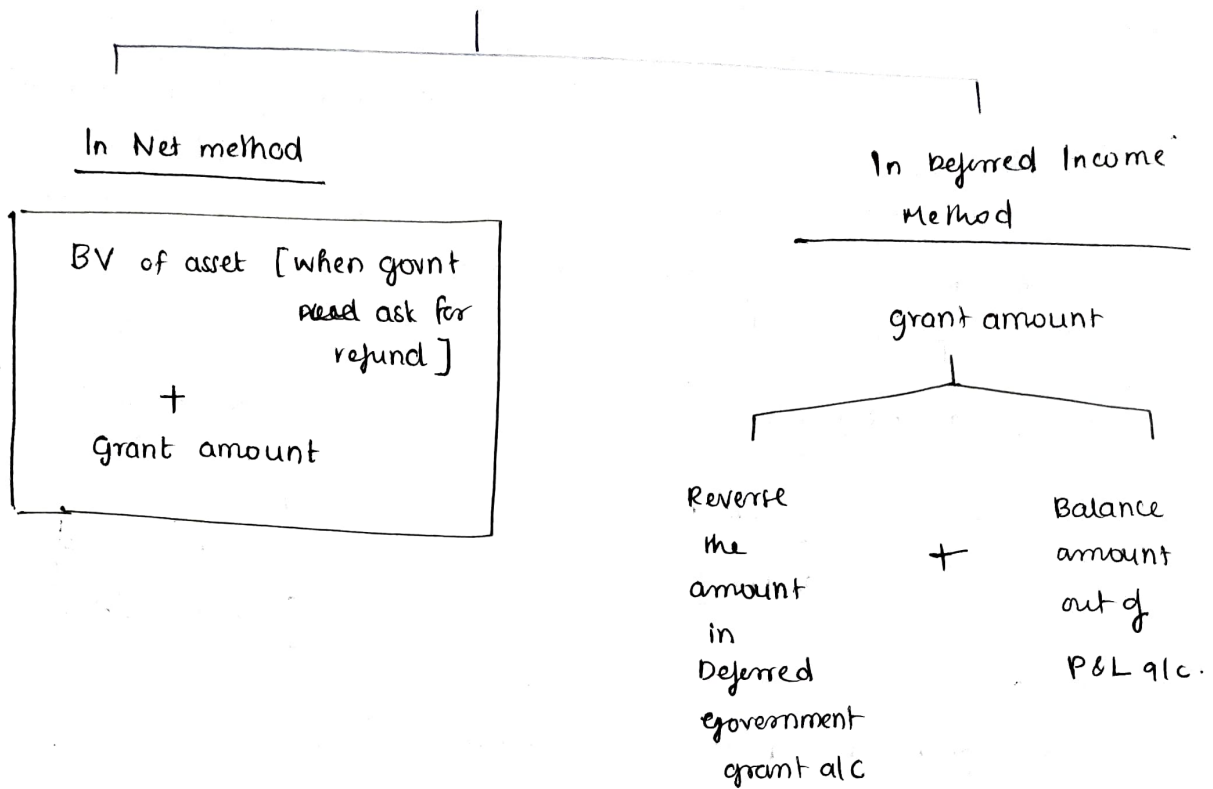 In Net method
BV of asset [when govnt
ask for
refund]
+
Grant amount
In Deferred Income
Method
grant amount
Reverse
the
amount
in
Deferred
government
grant a/c
+
Balance
amount
out of
P&L a/c.